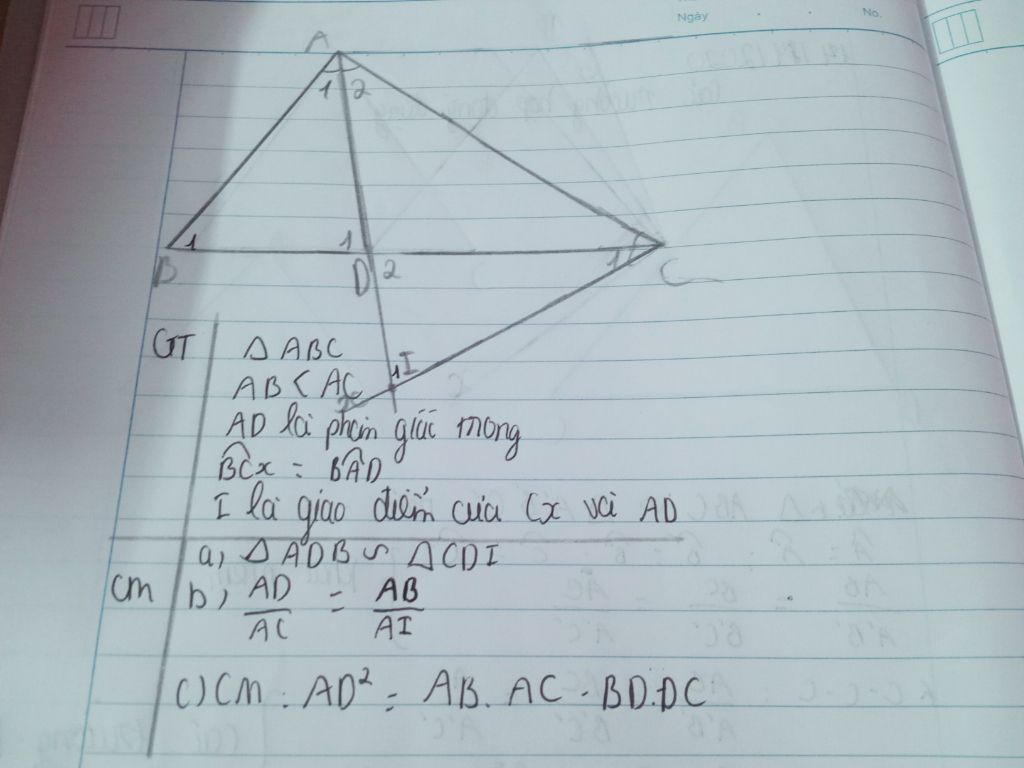 Ngày
No.
A
1 2
1 1 1
B D 2 C
1 I
x
GT
Δ ABC
AB < AC
AD là phân giác trong
BĈx = BÂD
I là giao điểm của Cx và AD
CM
a, Δ ADB ∽ Δ CDI
b, AD/AC = AB/AI
c) CM : AD² = AB. AC - BD.DC